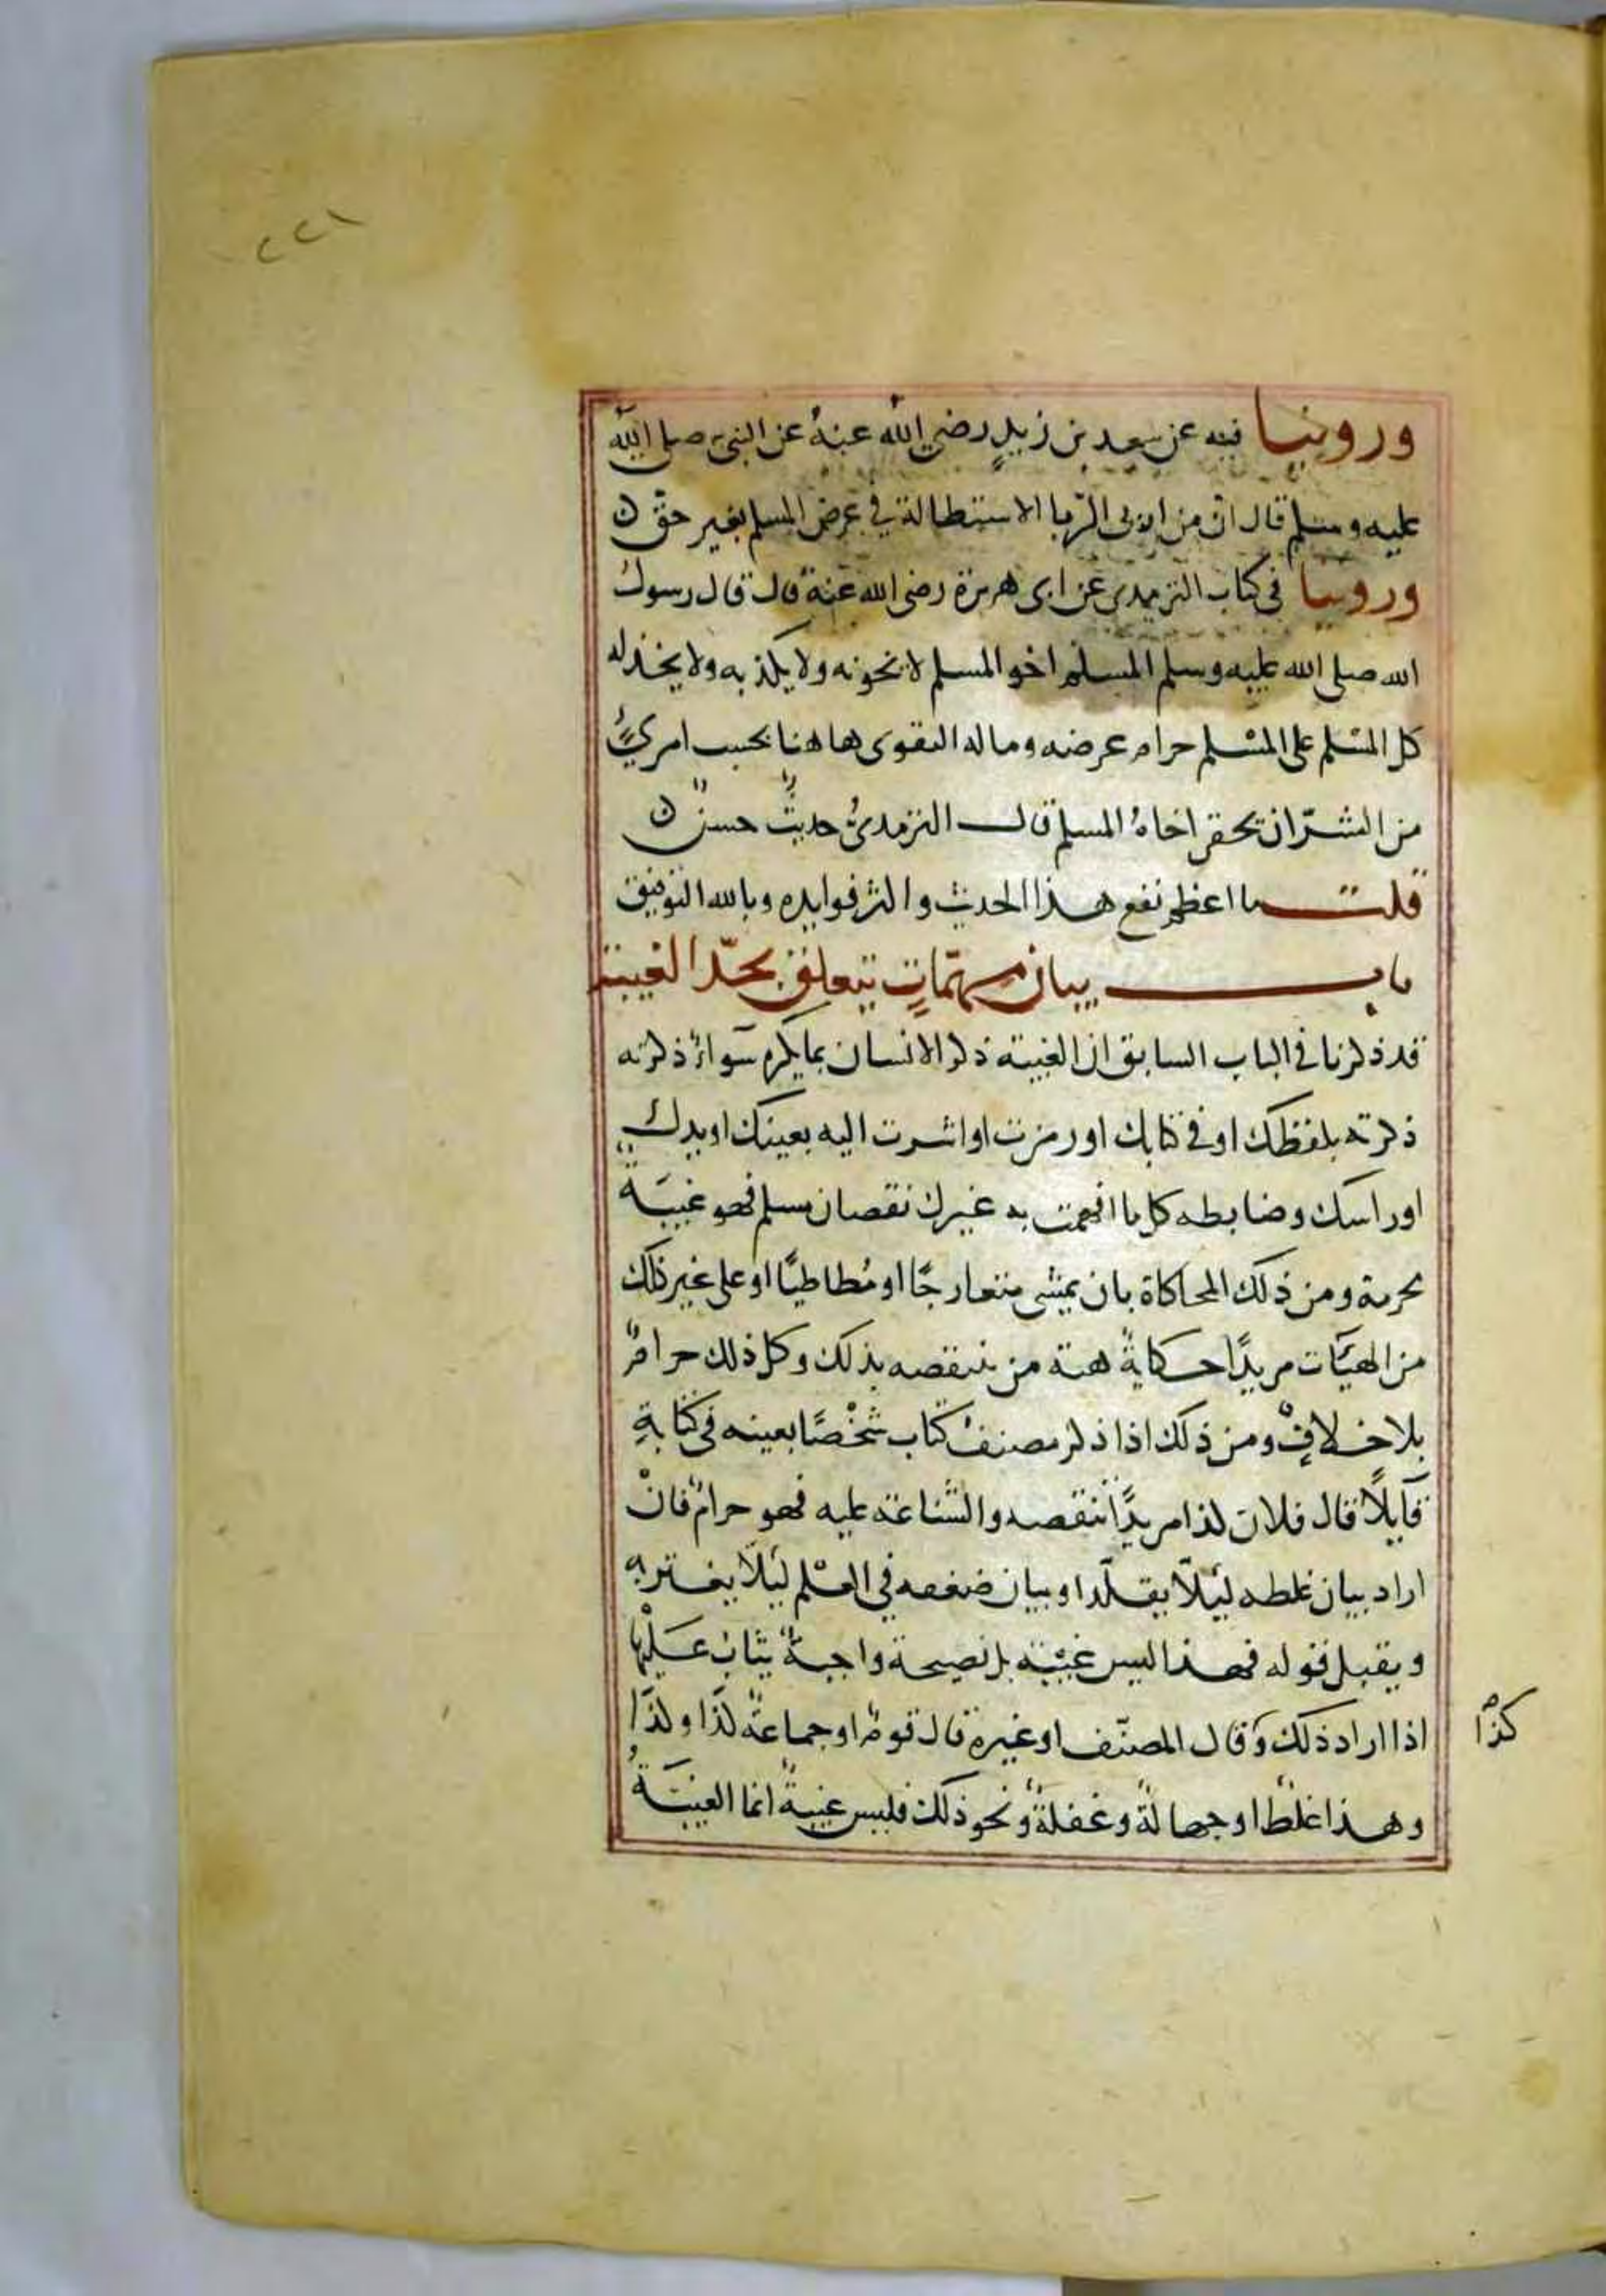 ٢٢١
وروينا فيه عن سعيد بن زيدٍ رضي الله عنهُ عن النبي صلى الله
عليه وسلم قال ان من اربى الرّبا الاستطالة في عرض المسلم بغير حقّ ن
وروينا في كتاب الترمذي عن ابي هريرة رضى الله عنهُ قال قال رسول
الله صلى الله عليه وسلم المسلم اخو المسلم لا يخونه ولا يكذبه ولا يخذله
كل المسْلم على المسْلم حرام عرضه وماله التقوى هاهنا بحسب امرئٍ
من الشرّ ان يحقر اخاهُ المسلم قال الترمذيُّ حديثٌ حسنٌ ن
قلت ما اعظم نفع هذا الحديث واكثر فوايده وبالله التوفيق
باب بيان مهمّاتٍ تتعلق بحدّ الغيبة
قد ذكرنا في الباب السابق ان الغيبة ذكر الانسان بما يكره سَواءٌ ذكرته
ذكرته بلفظك او في كتابك او رمزت او اشرت اليه بعينك او يدك
او راسك وضابطه كل ما افهمت به غيرك نقصان مسلم فهو غيبَةٌ
محرمة ومن ذلك المحاكاة بان يمشى متعارجًا او مُطاطيًا او على غير ذلك
من الهيَات مريدًا حكايةً هيئة من يتنقصه بذلك وكل ذلك حرامٌ
بلا خلافٍ ومن ذلك اذا ذكر مصنفُ كتاب شخْصًا بعينه في كتابةِ
قآيلًا قال فلان كذا مريدًا تنقصه والشناعة عليه فهو حرامٌ فانْ
اراد بيان غلطه لئلّا يقلّد او بيان ضعفه في العلْم لئلّا يغترّ به
ويقبل قوله فهذا ليس غيبْة بل نصيحة واجبةٌ يثابُ عَليْها
اذا اراد ذلك وَقال المصنّف او غيره قال قومٌ او جماعةٌ كذا وكذَا
وهذا غلطٌ او جهالةٌ وغفلةٌ ونحو ذلك فليس غيبةً انما الغيبَةُ
كذا